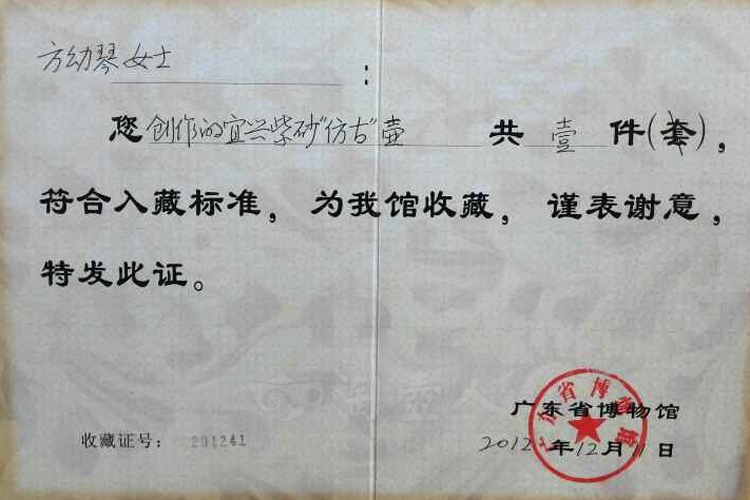 方幼琴女士：
您创作的宜兴紫砂"仿古"壶 共 壹 件(套)，
符合入藏标准，为我馆收藏，谨表谢意，
特发此证。
广东省博物馆
收藏证号：201241
2012年12月11日
广东省博物馆